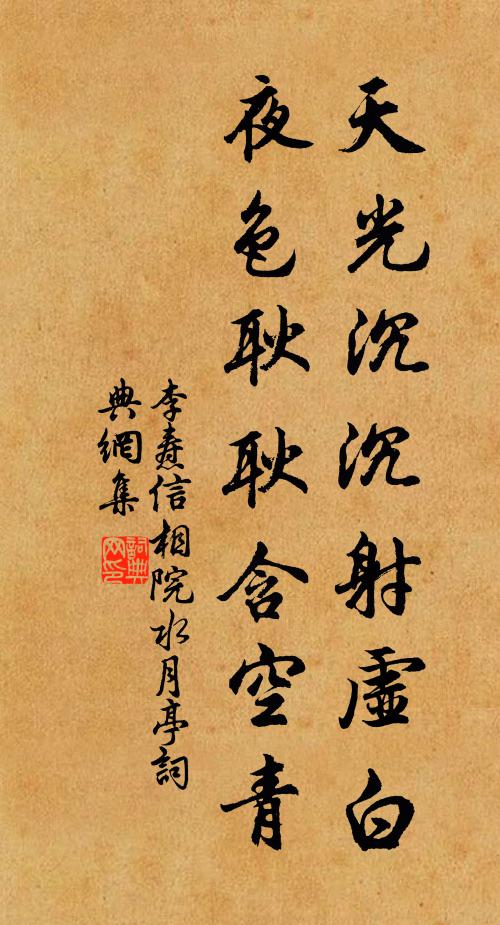 天光沉沉射虛白
夜色耿耿含空青
李燾信相院水月亭詞
典網集
詞典網印